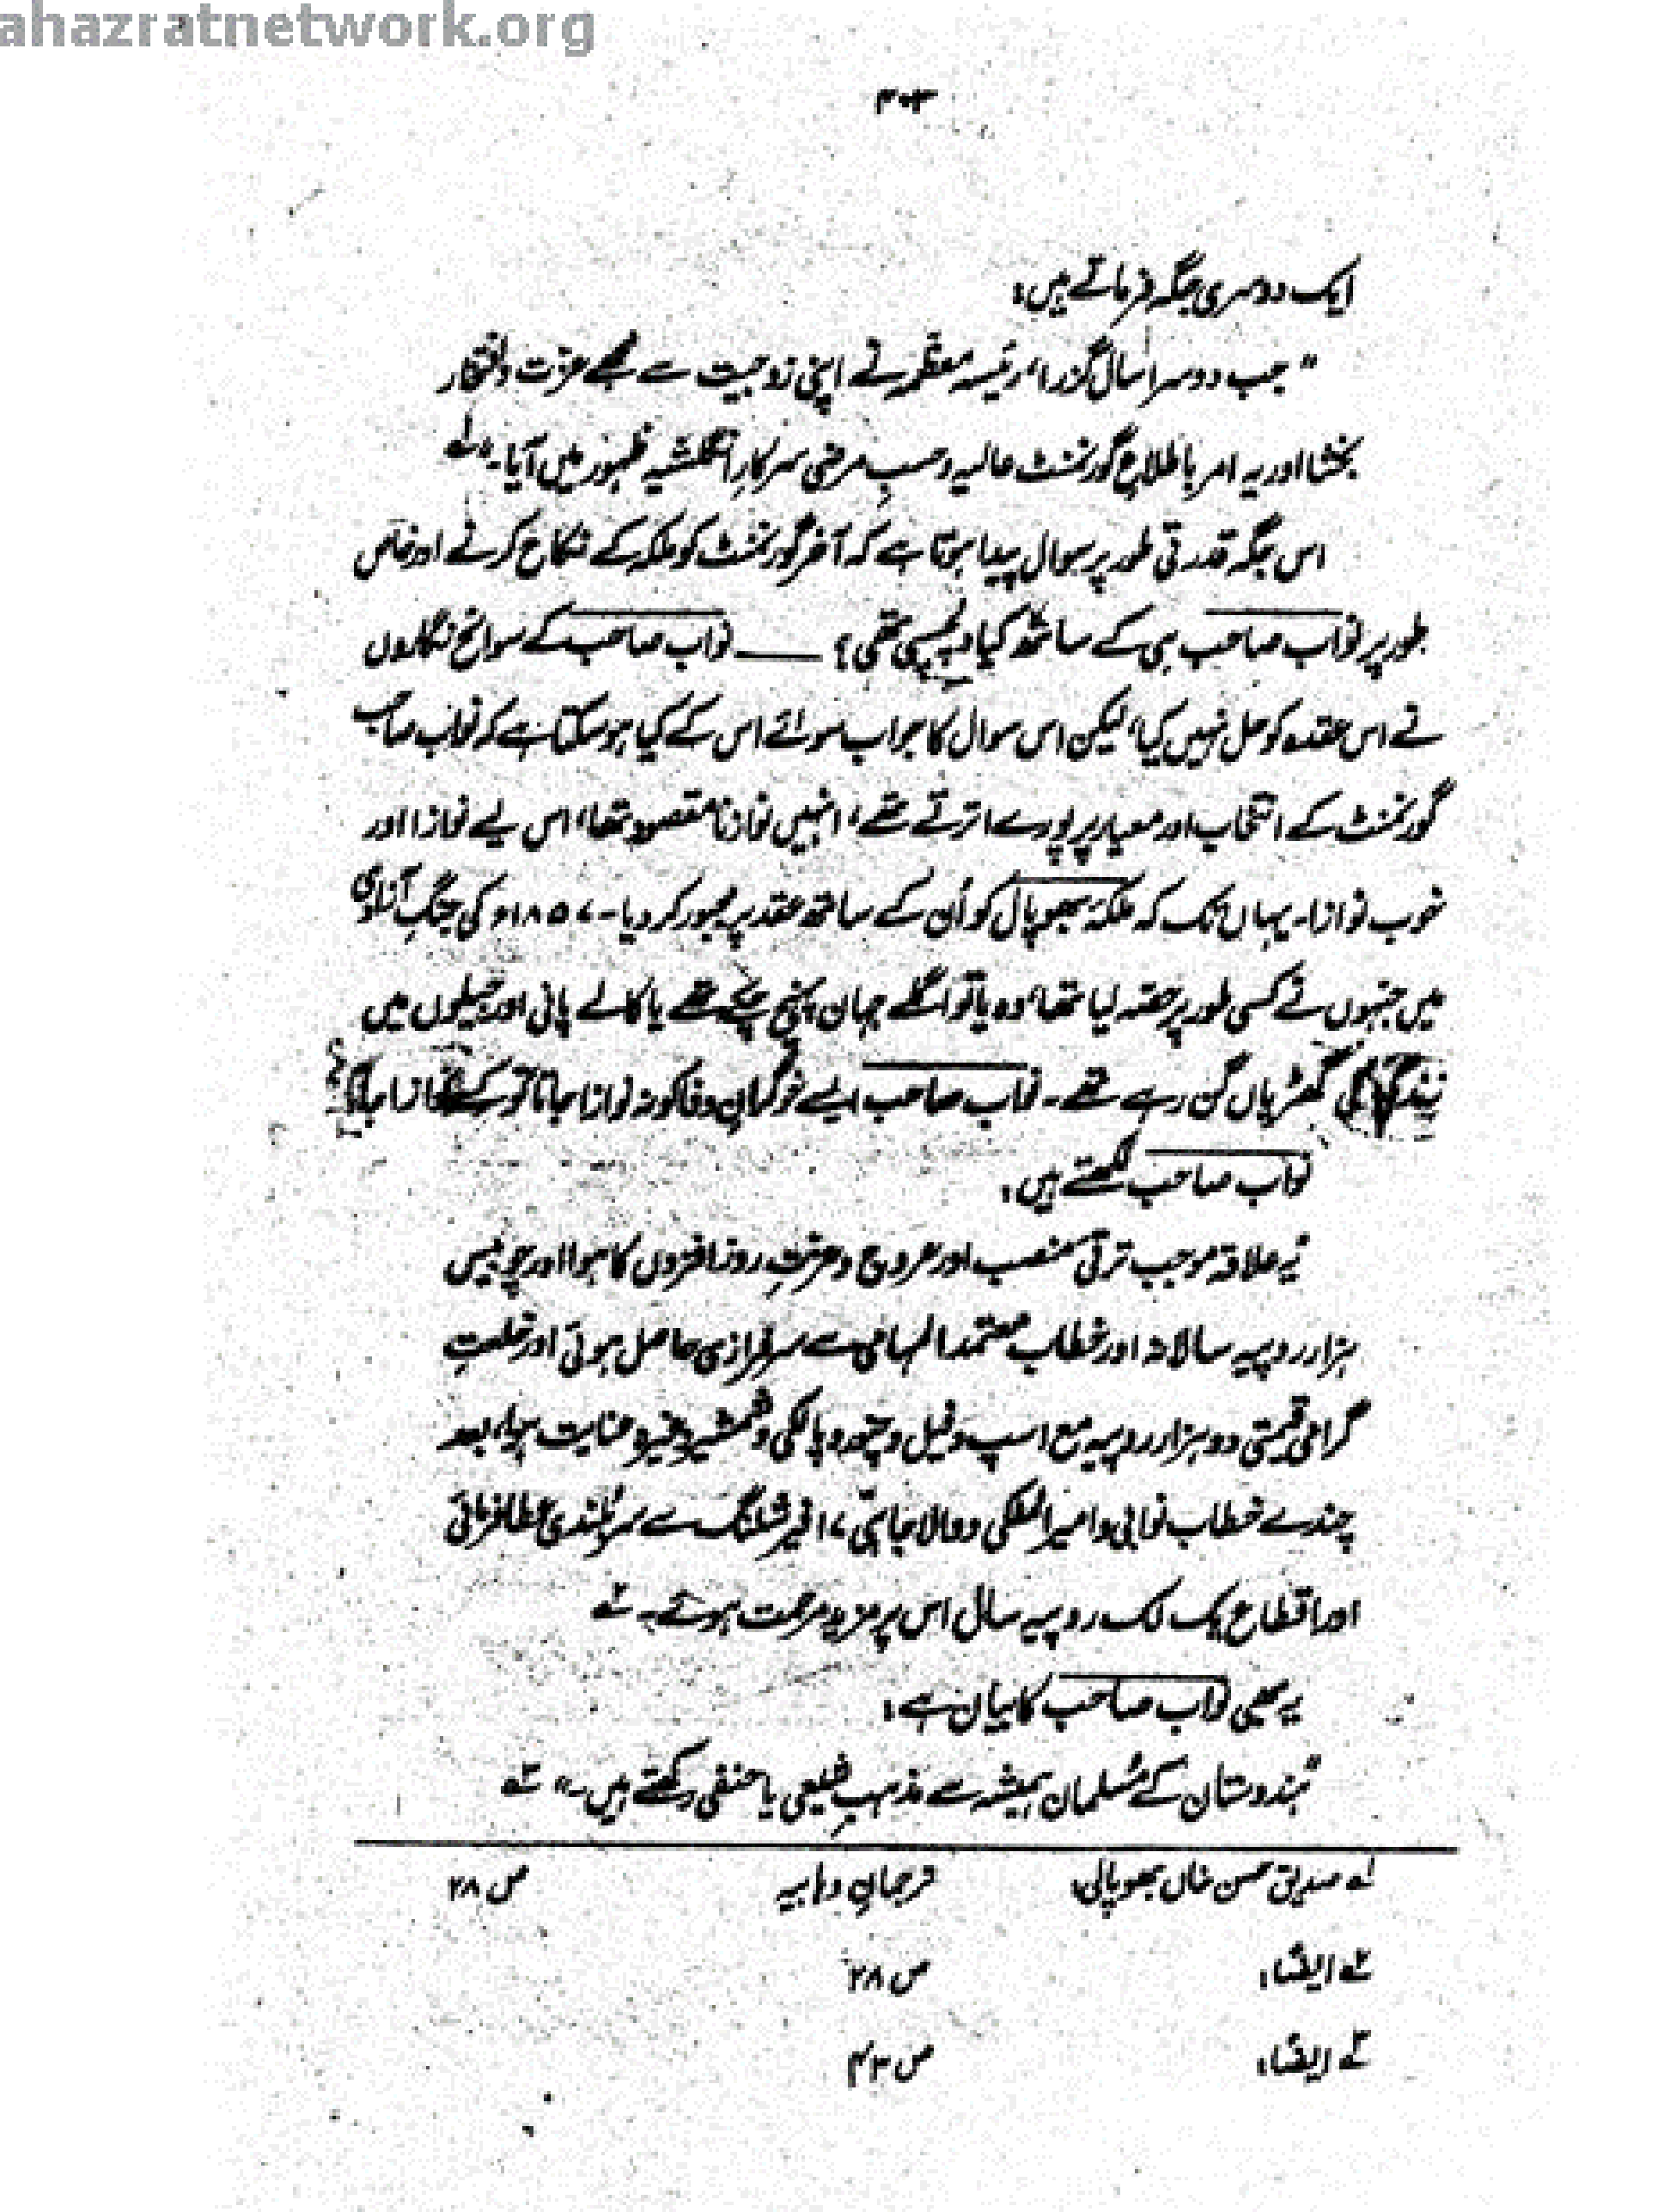 ahazratnetwork.org
۴۰۳
ایک دوسری جگہ فرماتے ہیں:
" جب دوسرا سال گزرا، رئیسہ معظمہ نے اپنی زوجیت سے مجھے عزت و افتخار
بخشا اور یہ امر باطلاع گورنمنٹ عالیہ و حسبِ مرضی سرکارِ انگلشیہ ظہور میں آیا۔" لے
اس جگہ قدرتی طور پر سوال پیدا ہوتا ہے کہ آخر گورنمنٹ کو ملکہ کے نکاح کرنے اور خاص
طور پر نواب صاحب ہی کے ساتھ کیا دلچسپی تھی؟ ــــــ نواب صاحب کے سوانح نگاروں
نے اس عقدہ کو حل نہیں کیا، لیکن اس سوال کا جواب سوائے اس کے کیا ہو سکتا ہے کہ نواب صاحب
گورنمنٹ کے انتخاب اور معیار پر پورے اترتے تھے، انہیں نوازنا مقصود تھا، اس لیے نوازا اور
خوب نوازا۔ یہاں تک کہ ملکۂ بھوپال کو اُن کے ساتھ عقد پر مجبور کر دیا۔ ۱۸۵۷ء کی جنگِ آزادی
میں جنہوں نے کسی طور پر حصہ لیا تھا، وہ یا تو اگلے جہان پہنچ چکے تھے یا کالے پانی اور جیلوں میں
زندگی کی گھڑیاں گن رہے تھے۔ نواب صاحب ایسے خوگرانِ وفا کو نہ نوازا جاتا تو کسے نوازا جاتا؟
نواب صاحب لکھتے ہیں:
"یہ علاقہ موجب ترقی منصب اور عروج و عزتِ روز افزوں کا ہوا اور چوبیس
ہزار روپیہ سالانہ اور خطاب معتمد المہامی سے سرفرازی حاصل ہوئی اور خلعتِ
گرامی قیمتی دو ہزار روپیہ مع اسپ و فیل و چنور و پالکی و شمشیر وغیرہ عنایت ہوا، بعد
چندے خطاب نوابی و امیر الملکی و والا جاہی، ۱۷ فیر شلنگ سے سربلندی عطا فرمائی
اور اقطاع یک لک روپیہ سال اس پر مزید مرحمت ہوئے۔ ۲ے
یہ بھی نواب صاحب کا بیان ہے:
"ہندوستان کے مُسلمان ہمیشہ سے مذہبِ شیعی یا حنفی رکھتے ہیں۔" ۳ے
لے صدیق حسن خاں بھوپالی، ترجمانِ وہابیہ ص ۲۸
۲ے ایضًا، ص ۲۸
۳ے ایضًا، ص ۴۳